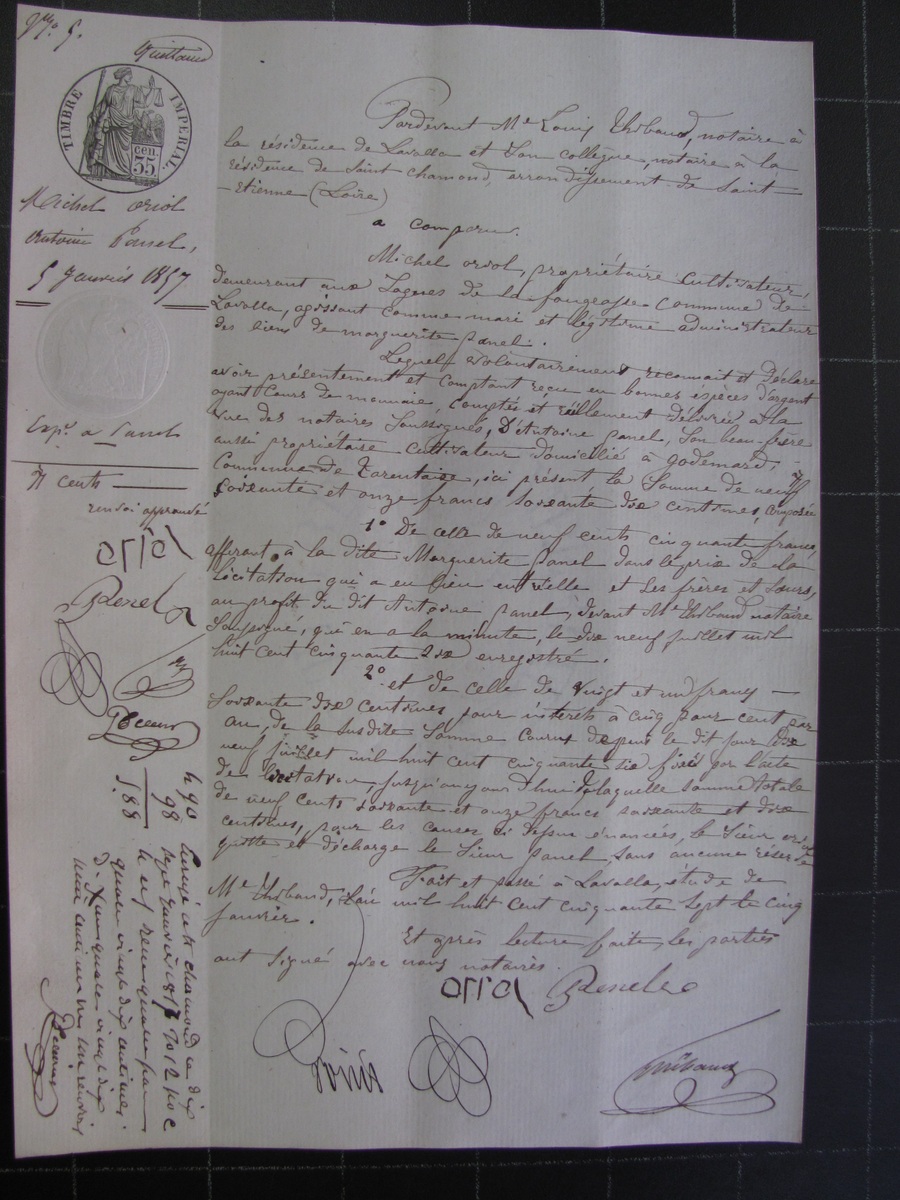 N° 5.
Quittance
TIMBRE IMPERIAL
55 cen.
Michel oriol
Antoine Panel,
5 Janvier 1857
Exp. a Panel
╫ cents
renvoi approuvé
orriol
Panel
Pardevant Me Louis Thibaud, notaire à
la résidence de Lavalla et son collègue, notaire à la
résidence de Saint chamond, arrondissement de Saint
Etienne (Loire)
a comparu.
Michel oriol, propriétaire cultivateur,
demeurant aux Lagnes de la fougeasse commune de
Lavalla, agissant comme mari et légitime administrateur
des biens de marguerite panel.
Lequel volontairement reconnait et déclare
avoir présentement et comptant reçu en bonnes espèces d'argent
ayant cours de monnaie, comptés et réellement délivrés à la
vue des notaires soussignés, D'Antoine panel, son beau-frère
aussi propriétaire cultivateur domicilié à godemard,
Commune de Tarentaise, ici présent, la somme de neuf ╫
soixante et onze francs soixante dix centimes, composée
1° De celle de neuf cents cinquante francs,
afférant à la dite Marguerite panel dans le prix de la
licitation qui a eu lieu entr'elle et ses frères et soeurs,
au profit du dit Antoine panel, devant Me Thibaud notaire
soussigné, qui en a la minute, le dix neuf juillet mil
huit cent cinquante six enregistré.
2° et de celle de vingt et un francs
soixante dix centimes pour intérêts à cinq pour cent par
an, de la susdite somme courus depuis le dit jour dix
neuf juillet mil huit cent cinquante six fixés par l'acte
de licitation, jusqu'aujourd'hui, de laquelle somme totale
de neuf cents soixante et onze francs soixante et dix
centimes, pour les causes ci dessus énoncées, le sieur oriol
quitte et décharge le sieur panel, sans aucune réserve
Fait et passé à Lavalla, étude de
Me Thibaud, l'an mil huit cent cinquante sept le cinq
janvier.
Et après lecture faite, les parties
ont signé avec nous notaires.
orriol Panel
Thibaud
4 90
98
5.88
Enregistré à St chamond le dix
quatre vingt dix centimes